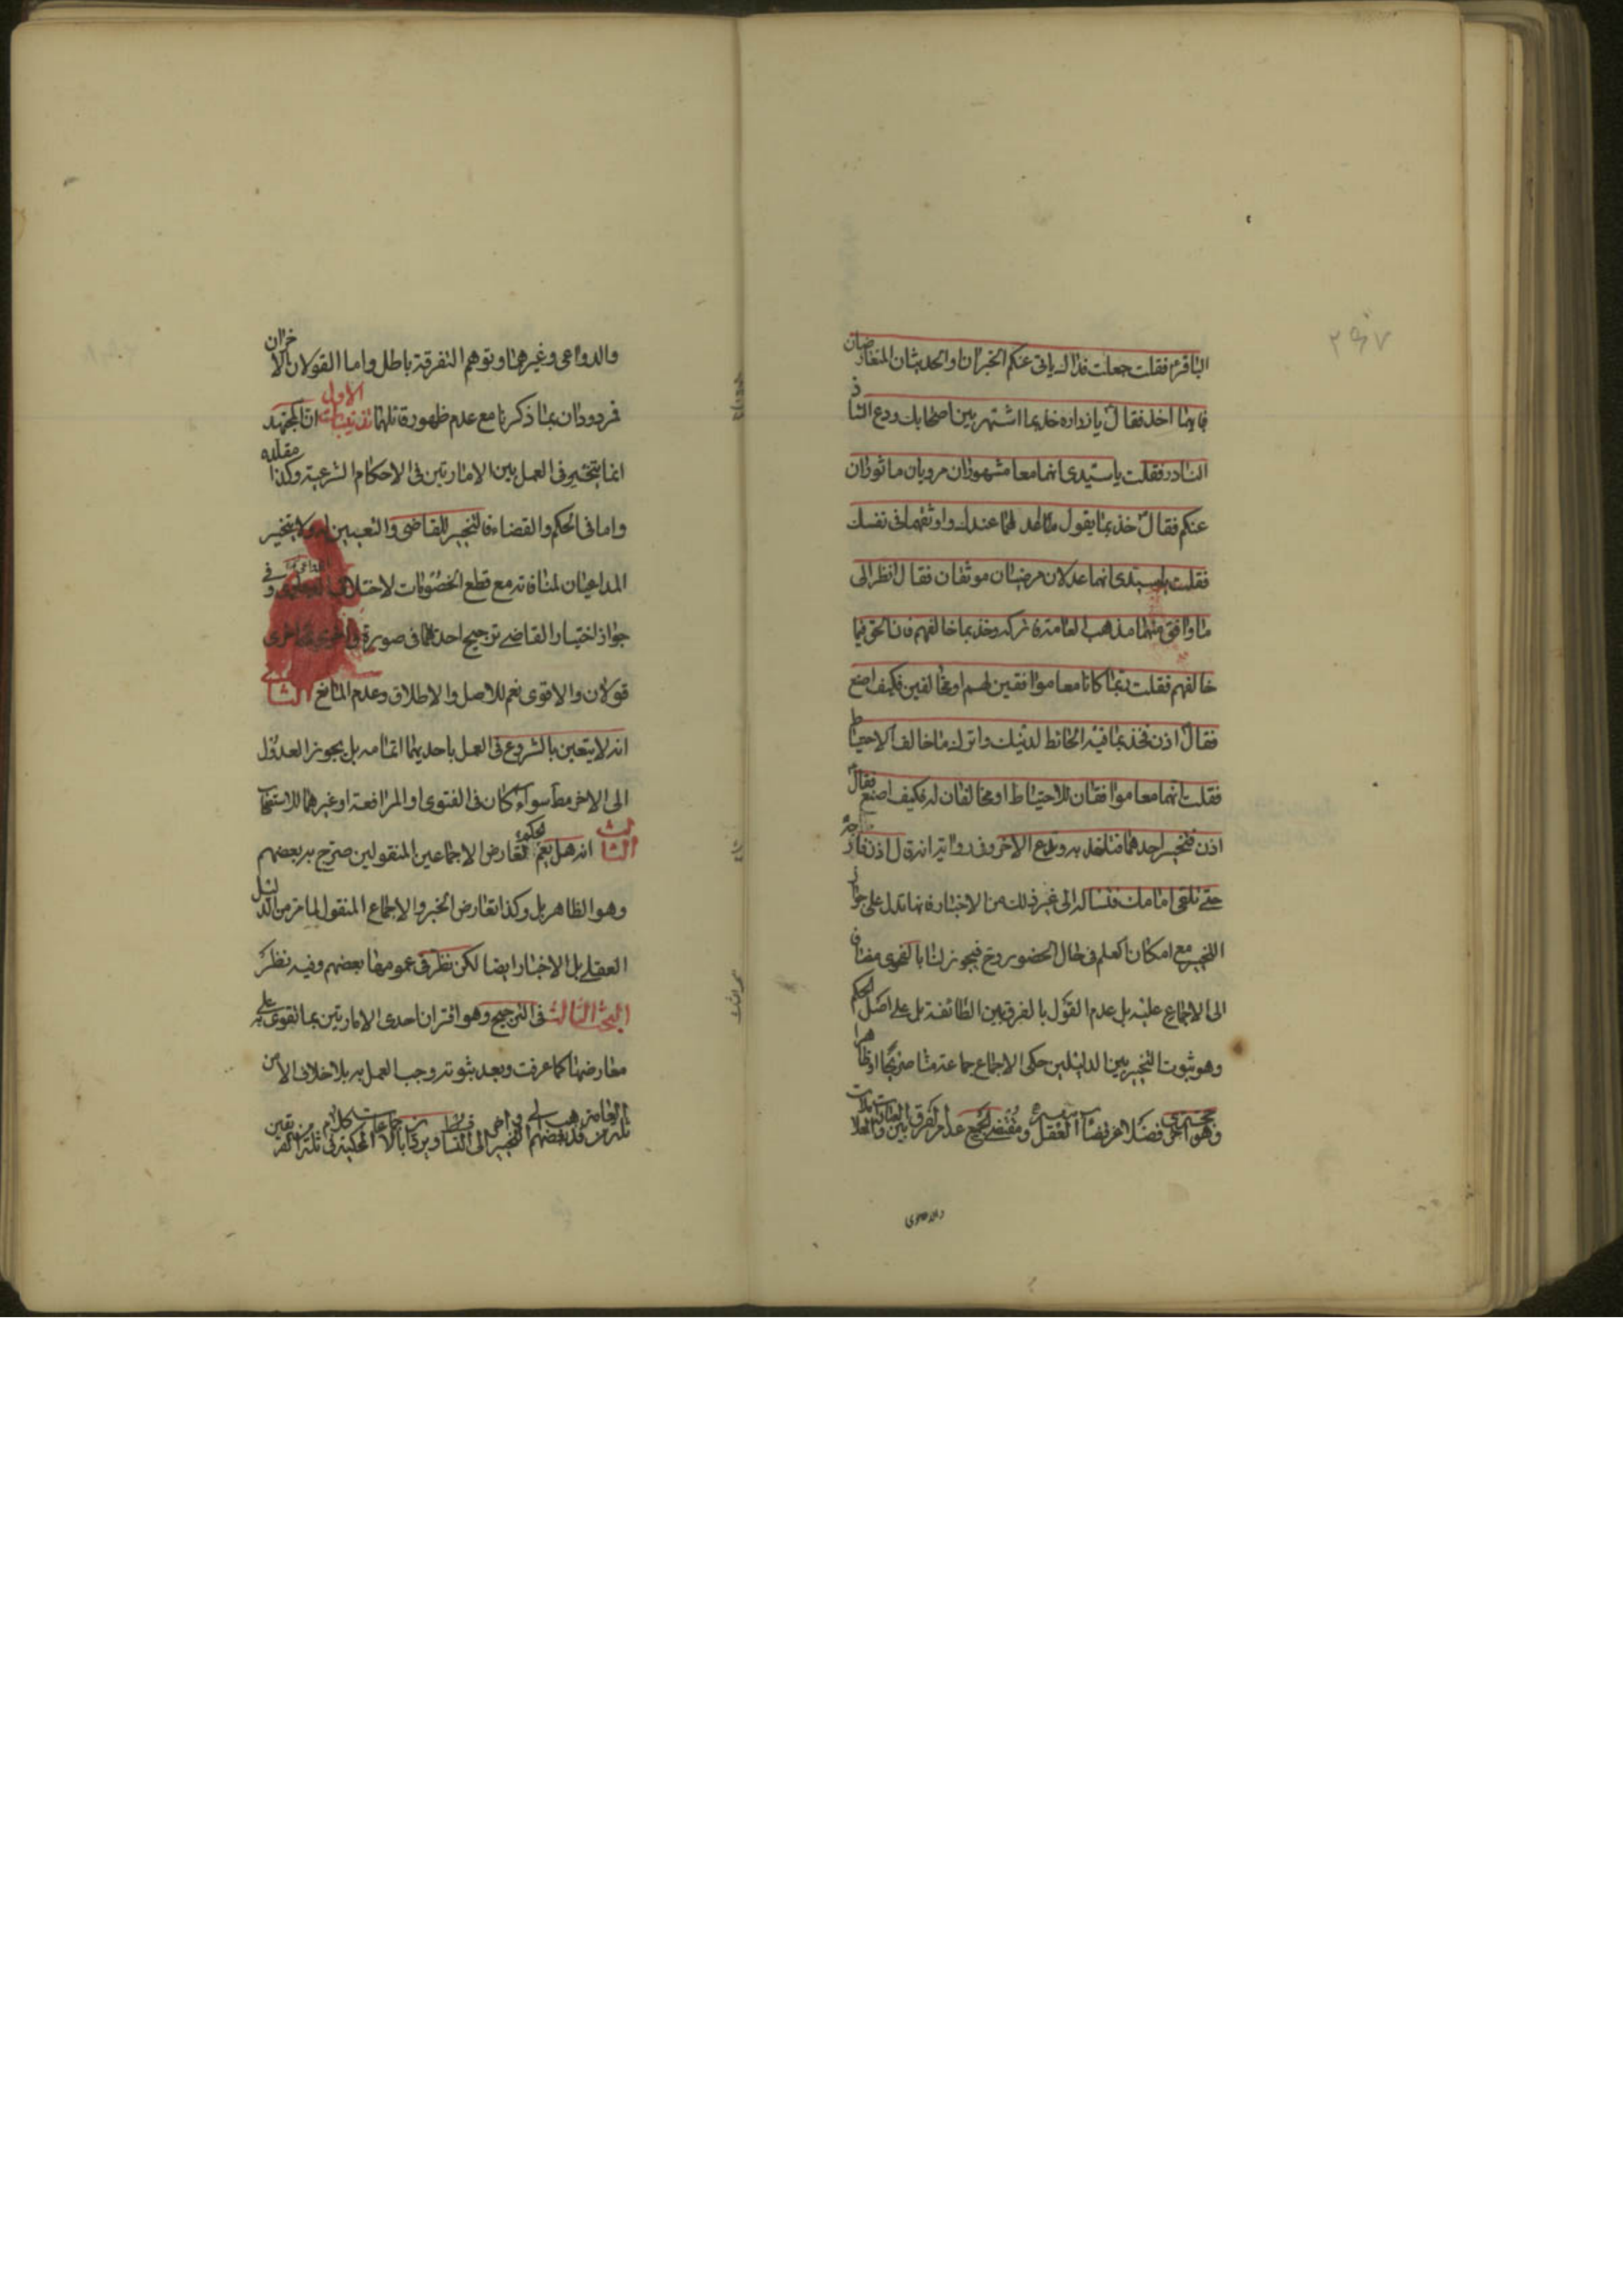 ٢٩٧
الباقرؑ فقلت جعلت فداك ياتى عنكم الخبران والحديثان المتعارضان
فبايهما اخذ فقالؑ يا زراره خذ بما اشتهر بين اصحابك ودع الشاذ
النادر فقلت يا سيدى انهما معا مشهوران مرويان ماثوران
عنكم فقالؑ خذ بما يقول اعدلهما عندك واوثقهما فى نفسك
فقلت يا سيدى انهما عدلان مرضيان موثقان فقال انظر الى
ما وافق منهما مذهب العامة فاتركه وخذ بما خالفهم فان الحق فيما
خالفهم فقلت ربما كانا معا موافقين لهم او مخالفين فكيف اصنع
فقالؑ اذن فخذ بما فيه الحائط لدينك واترك ما خالف الاحتياط
فقلت انهما معا موافقان للاحتياط او مخالفان له فكيف اصنع فقالؑ
اذن فتخير احدهما فتاخذ به وتدع الاخر وفى رواية انه قال اذن فارجه
حتى تلقى امامك فتساله الى غير ذلك من الاخبار فانها تدل على جواز
التخيير مع امكان العلم فى حال الحضور وح فيجوز لنا بالفحوى مضافا
الى الاجماع عليه بل عدم القول بالفرق بين الطائفة بل على اصل الحكم
وهو ثبوت التخيير بين الدليلين حكى الاجماع جماعة منا صريحا او ظاهرا
وهو فضلا عن العقل ومقتضى الجميع عدم الفرق بين
والدواعى وغيرهما وتوهم التفرقة باطل واما القولان الاخران
فمردودان بما ذكرنا مع عدم ظهور قائلهما تذنيبات الاول ان المجتهد
انما يتخير فى العمل بين الامارتين فى الاحكام الشرعية وكذا مقلده
واما فى الحكم والقضاء فالتخيير للقاضى والتعيين له ولا يتخير
المداعيان لمنافاته مع قطع الخصومات لاختلاف الدواعى وفى
جواز اختيار القاضى ترجيح احدهما فى صورة واخرى فى اخرى
قولان والاقوى نعم للاصل والاطلاق وعدم المانع الثانى
انه لا يتعين بالشروع فى العمل باحديهما اتمامه بل يجوز العدول
الى الاخر مط سواء كان فى الفتوى او المرافعة او غيرهما للاستصحاب
الثالث انه هل يعم الحكم؟ لتعارض الاجماعين المنقولين صرح به بعضهم
وهو الظاهر بل وكذا تعارض الخبر والاجماع المنقول لما مر من الدليل
العقلى بل الاخبار ايضا لكن نظر فى عمومها بعضهم وفيه نظر
البحث الثالث فى الترجيح وهو اقتران احدى الامارتين بما تقوى به على
معارضها كما عرفت وبعد ثبوته وجب العمل به بلا خلاف الا من